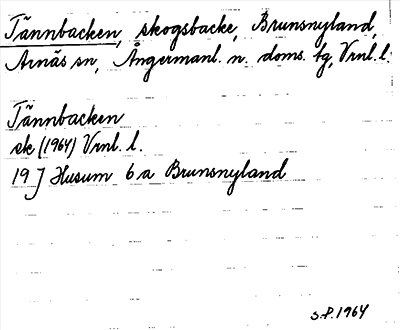 Tännbacken, skogsbacke, Brunsnyland,
Arnäs sn, Ångermanl. n. doms. tg, Vrnl. l.
Tännbacken
sk (1964) Vrnl. l.
19 J Husum 6 a Brunsnyland
S.P. 1964